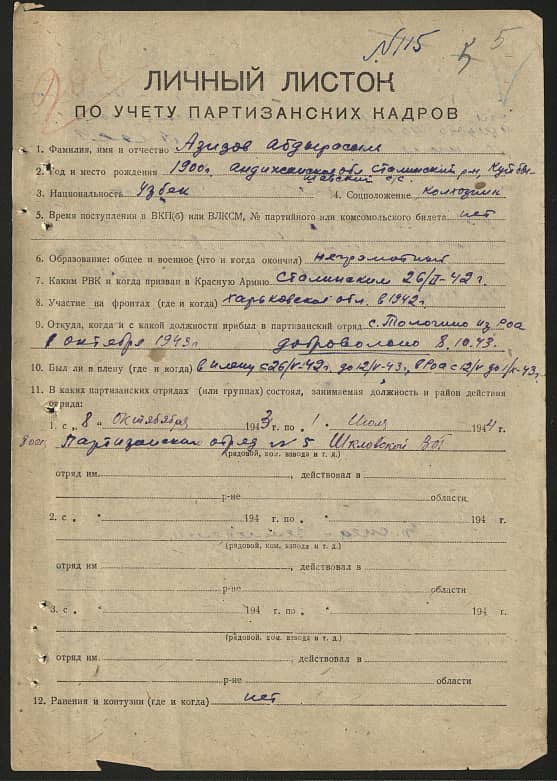 № 115 5
ЛИЧНЫЙ ЛИСТОК
ПО УЧЕТУ ПАРТИЗАНСКИХ КАДРОВ
1. Фамилия, имя и отчество Азизов Абдырасыл
2. Год и место рождения 1900г. андижанской обл. Сталинский р-н, Куйбы-
шевский с/с.
3. Национальность Узбек 4. Соцположение Колхозник
5. Время поступления в ВКП(б) или ВЛКСМ, № партийного или комсомольского билета нет
6. Образование: общее и военное (что и когда окончил) неграмотный
7. Каким РВК и когда призван в Красную Армию Сталинским 26/II-42 г.
8. Участие на фронтах (где и когда) Харьковской обл. в 1942г.
9. Откуда, когда и с какой должности прибыл в партизанский отряд с. Толочино из Роа
8 октября 1943г. добровольно 8.10.43.
10. Был ли в плену (где и когда) в плену с 26/V-42г. до 12/V-43г., в Роа с 12/V до 1/X-43г.
11. В каких партизанских отрядах (или группах) состоял, занимаемая должность и район действия
отряда:
1. с „ 8 “ Октября 1943 г. по „ 1 “ Июля 1944 г.
Партизанская отряд № 5 Шкловской
(рядовой, ком. взвода и т. д.)
отряд им. , действовал в
р-не области.
2. с „ “ 194 г. по „ “ 194 г.
(рядовой, ком. взвода и т. д.)
отряд им. , действовал в
р-не области
3. с „ “ 194 г. по „ “ 194 г.
(рядовой, ком. взвода и т. д.)
отряд им. , действовал в
р-не области
12. Ранения и контузии (где и когда) нет